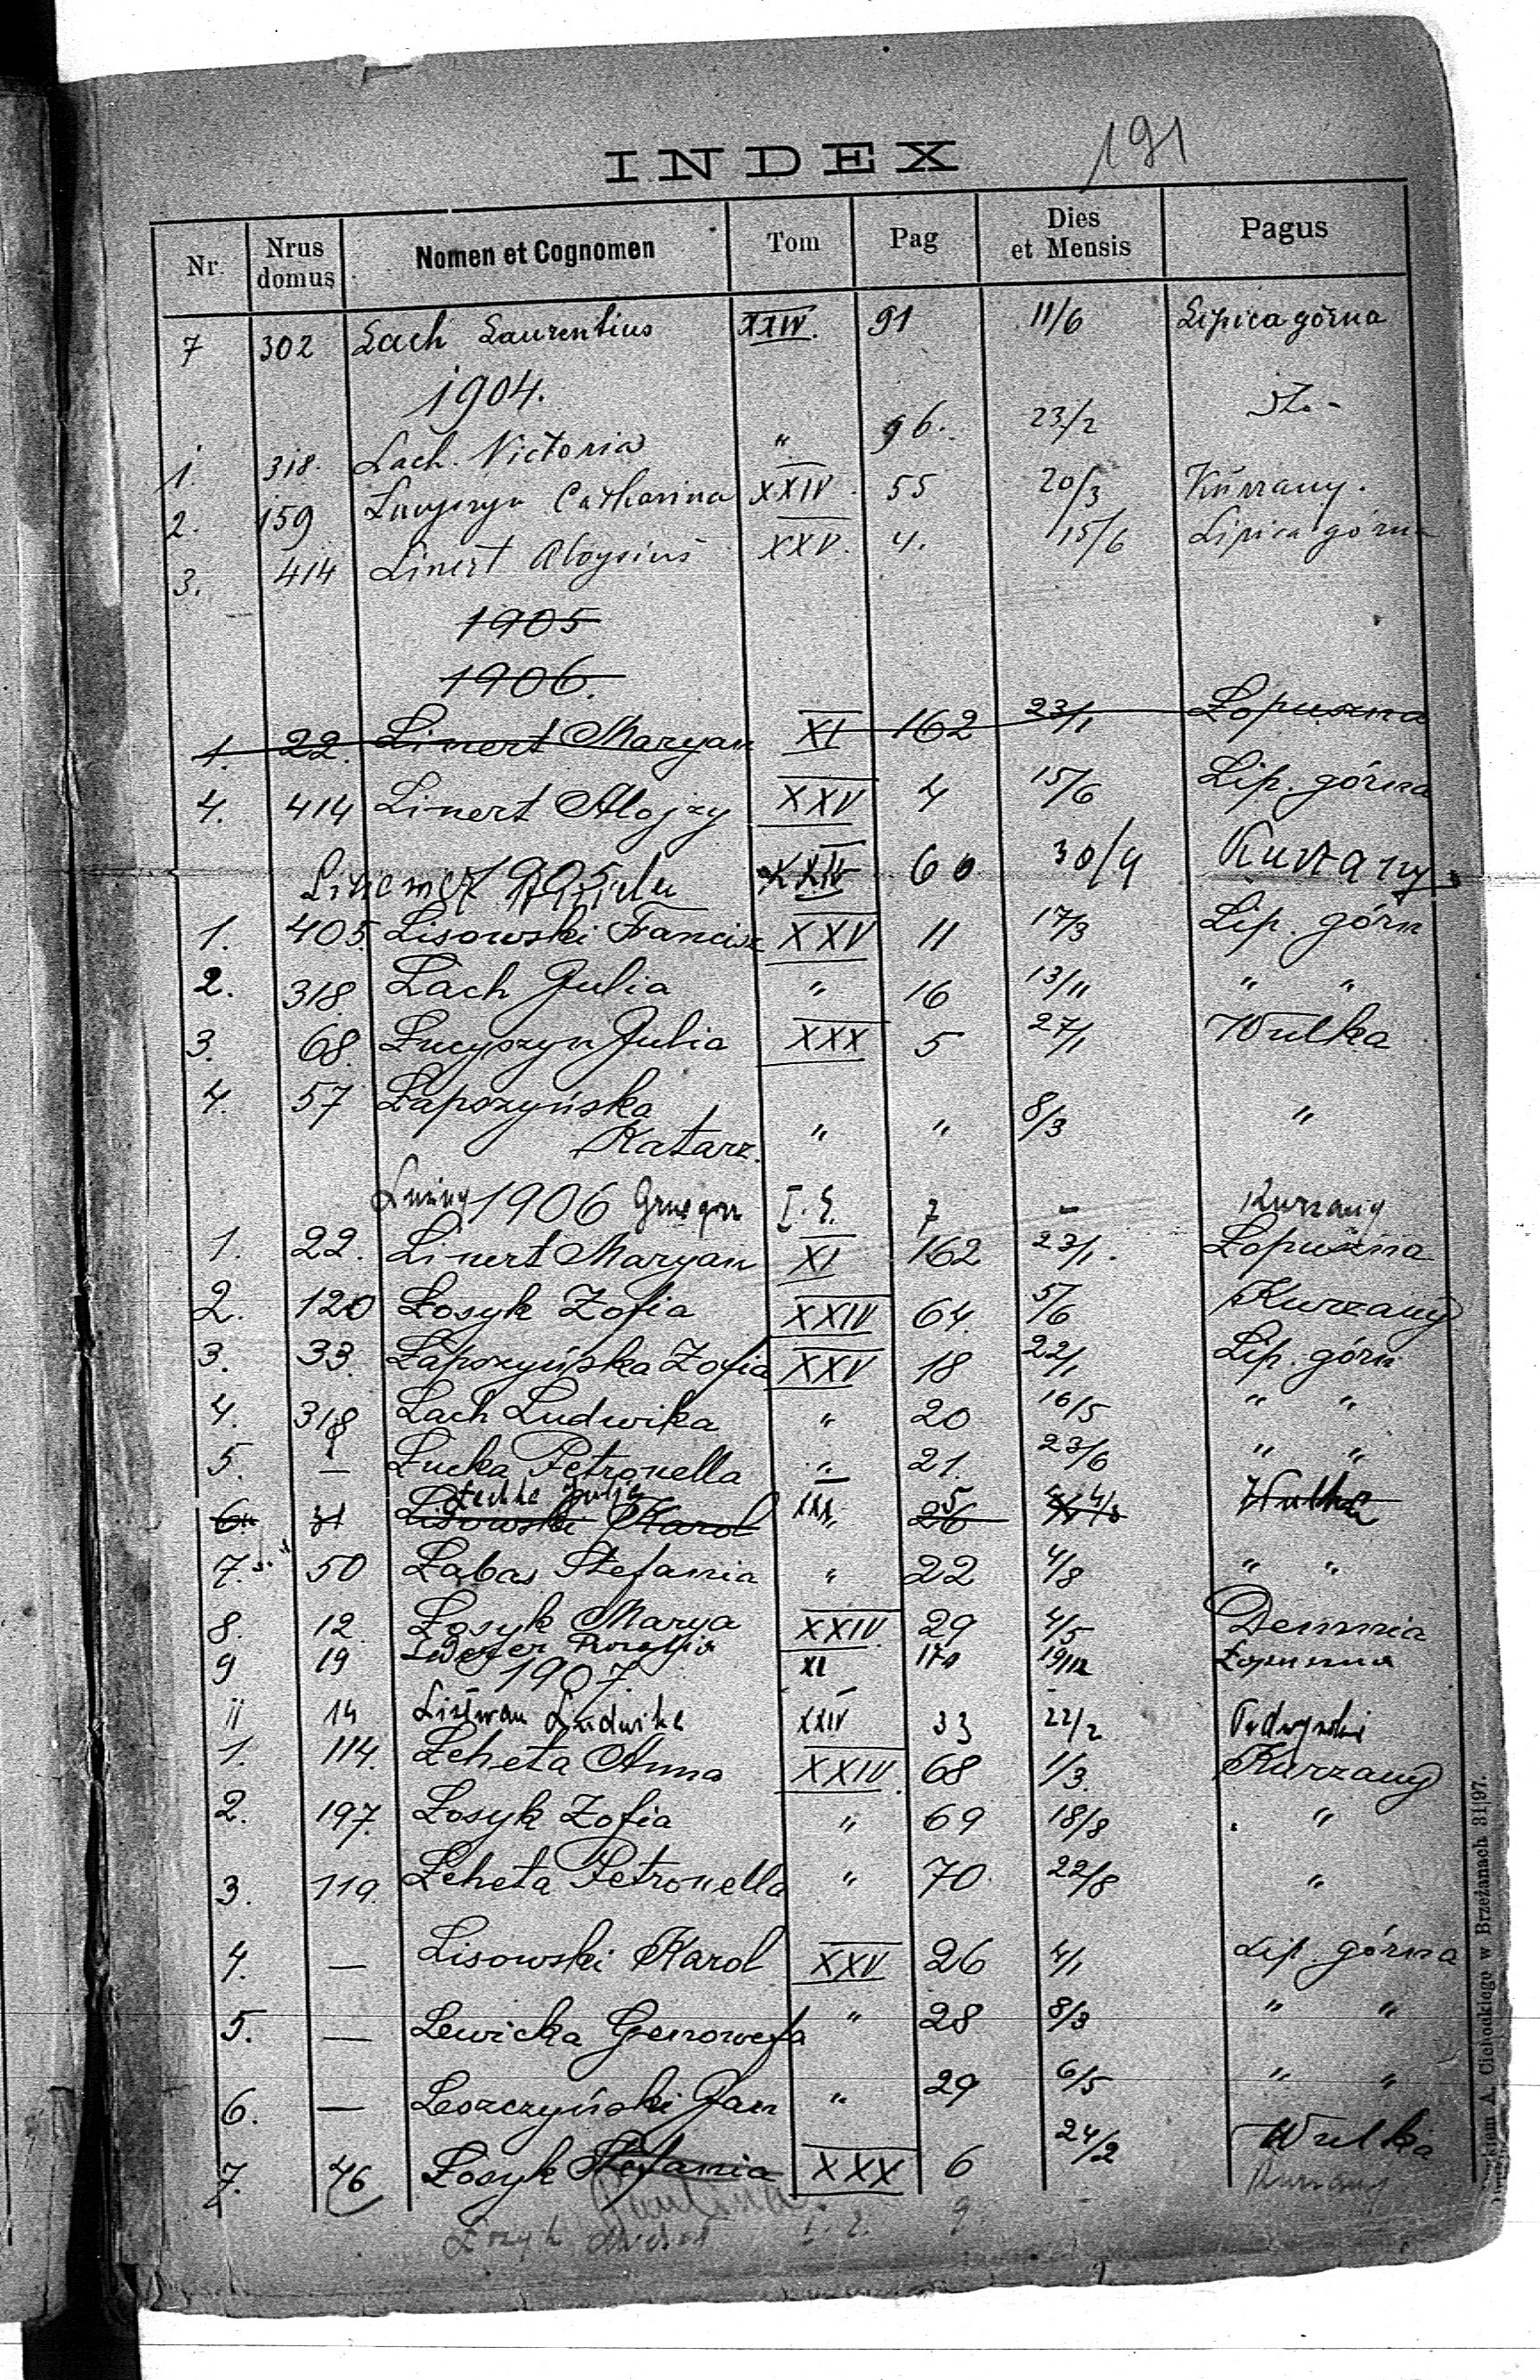 191
INDEX
Nr. Nrus domus Nomen et Cognomen Tom Pag Dies et Mensis Pagus
7 302 Lach Laurentius XXIV. 91 11/6 Lipica górna
1904.
1. 318. Lach. Victoria " 96. 23/2
2. 159 Łucyszyn Catharina XXIV. 55 20/3 Kurzany.
3. 414 Linert Aloysius XXV. 4. 15/6 Lipica górna
1905
1906.
1. 22. Linert Maryan XI 162 23/1 Łopuszna
4. 414 Linert Alojzy XXV 4 15/6 Lip. górna
1905 XXIV 60 30/9 Kurzany
1. 405 Lisowski Francisz XXV 11 17/3 Lip. górn
2. 318. Lach Julia " 16 13/11 " "
3. 68. Łucyszyn Julia XXX 5 27/1 Wulka
4. 57 Łapszyńska
Katarz. " " 8/3 "
1906 I. E. 7 - Kurzany
1. 22. Linert Maryan XI 162 23/1. Łopuszna
2. 120 Łosyk Zofia XXIV 64. 5/6 Kurzany
3. 33. Łapszyńska Zofia XXV 18 22/1 Lip. górn
4. 318 Lach Ludwika " 20 16/5 " "
5. — Łucka Petronella " 21. 23/6 " "
Julia XXX 5 4/3
6. 31 Lisowski Karol " 26 Wulka
7. 50 Łabas Stefania " 22 4/8 " "
8. 12. Łosyk Marya XXIV. 29 4/5 Demnia
9 19 XI 170 19/12 Łopuszna
1907.
11 14 Liszwan Ludwika XXIV 33 22/2
1. 114. Leheta Anna XXIV. 68 1/3. Kurzany
2. 197. Łosyk Zofia " 69 18/8 "
3. 119. Leheta Petronella " 70. 22/8 "
4. — Lisowski Karol XXV 26 4/1 Lip. górna
5. — Lewicka Genowefa " 28 8/3 " "
6. — Leszczyński Jan " 29 6/5 " "
7. 46 Łosyk Stefania XXX 6 24/2 Wulka
Paulina. Kurzany
I. E. 9.
A. Cichockiego w Brzeżanach 31|97.